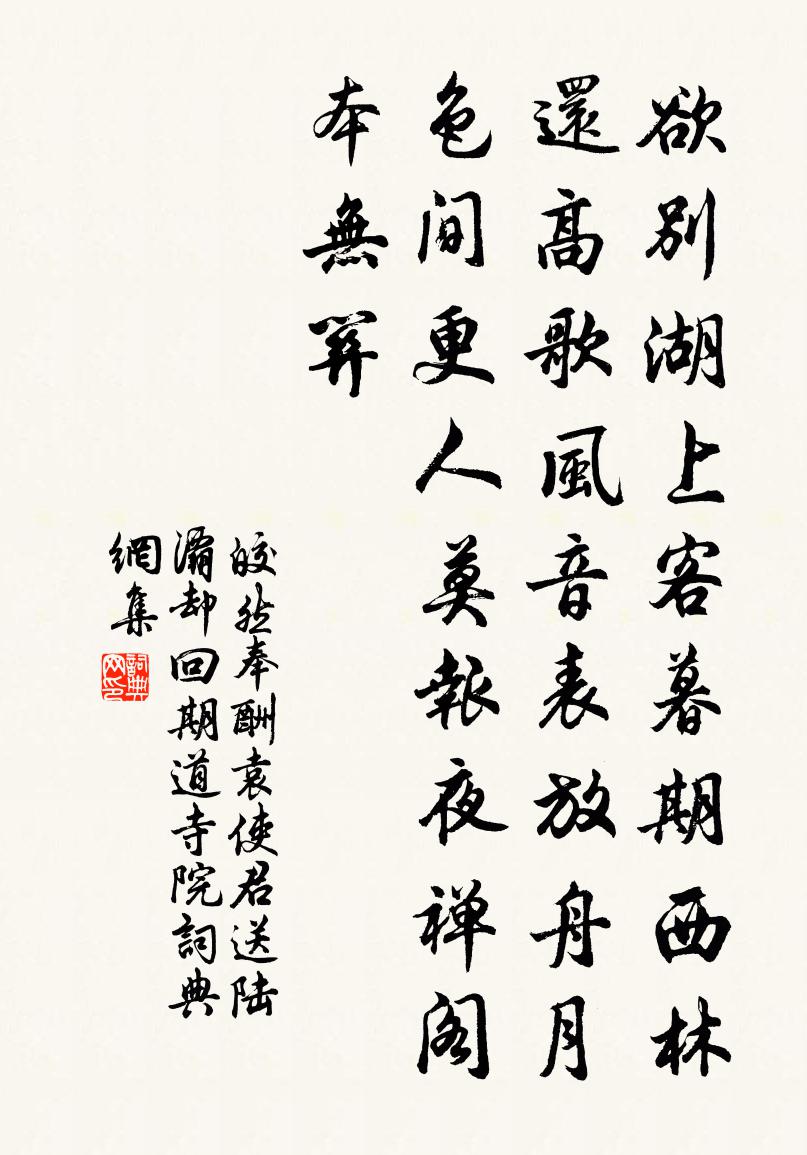 欲別湖上客暮期西林
還高歌風音表放舟月
色间更人莫報夜禅阁
本無关
皎然奉酬袁使君送陆
灞却回期道寺院詞典
網集
詞典
网印